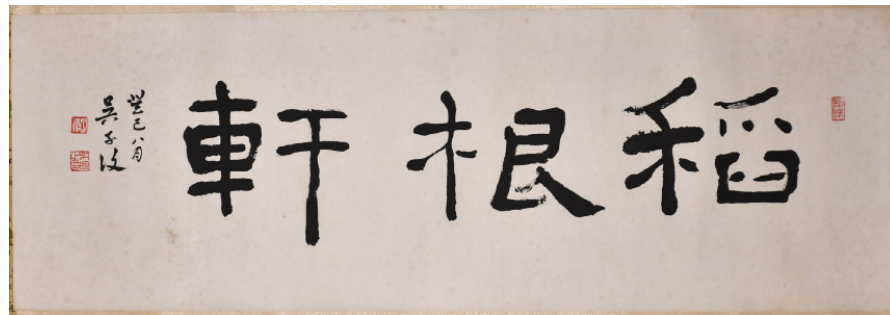 稻根軒
癸巳八月
吳子復